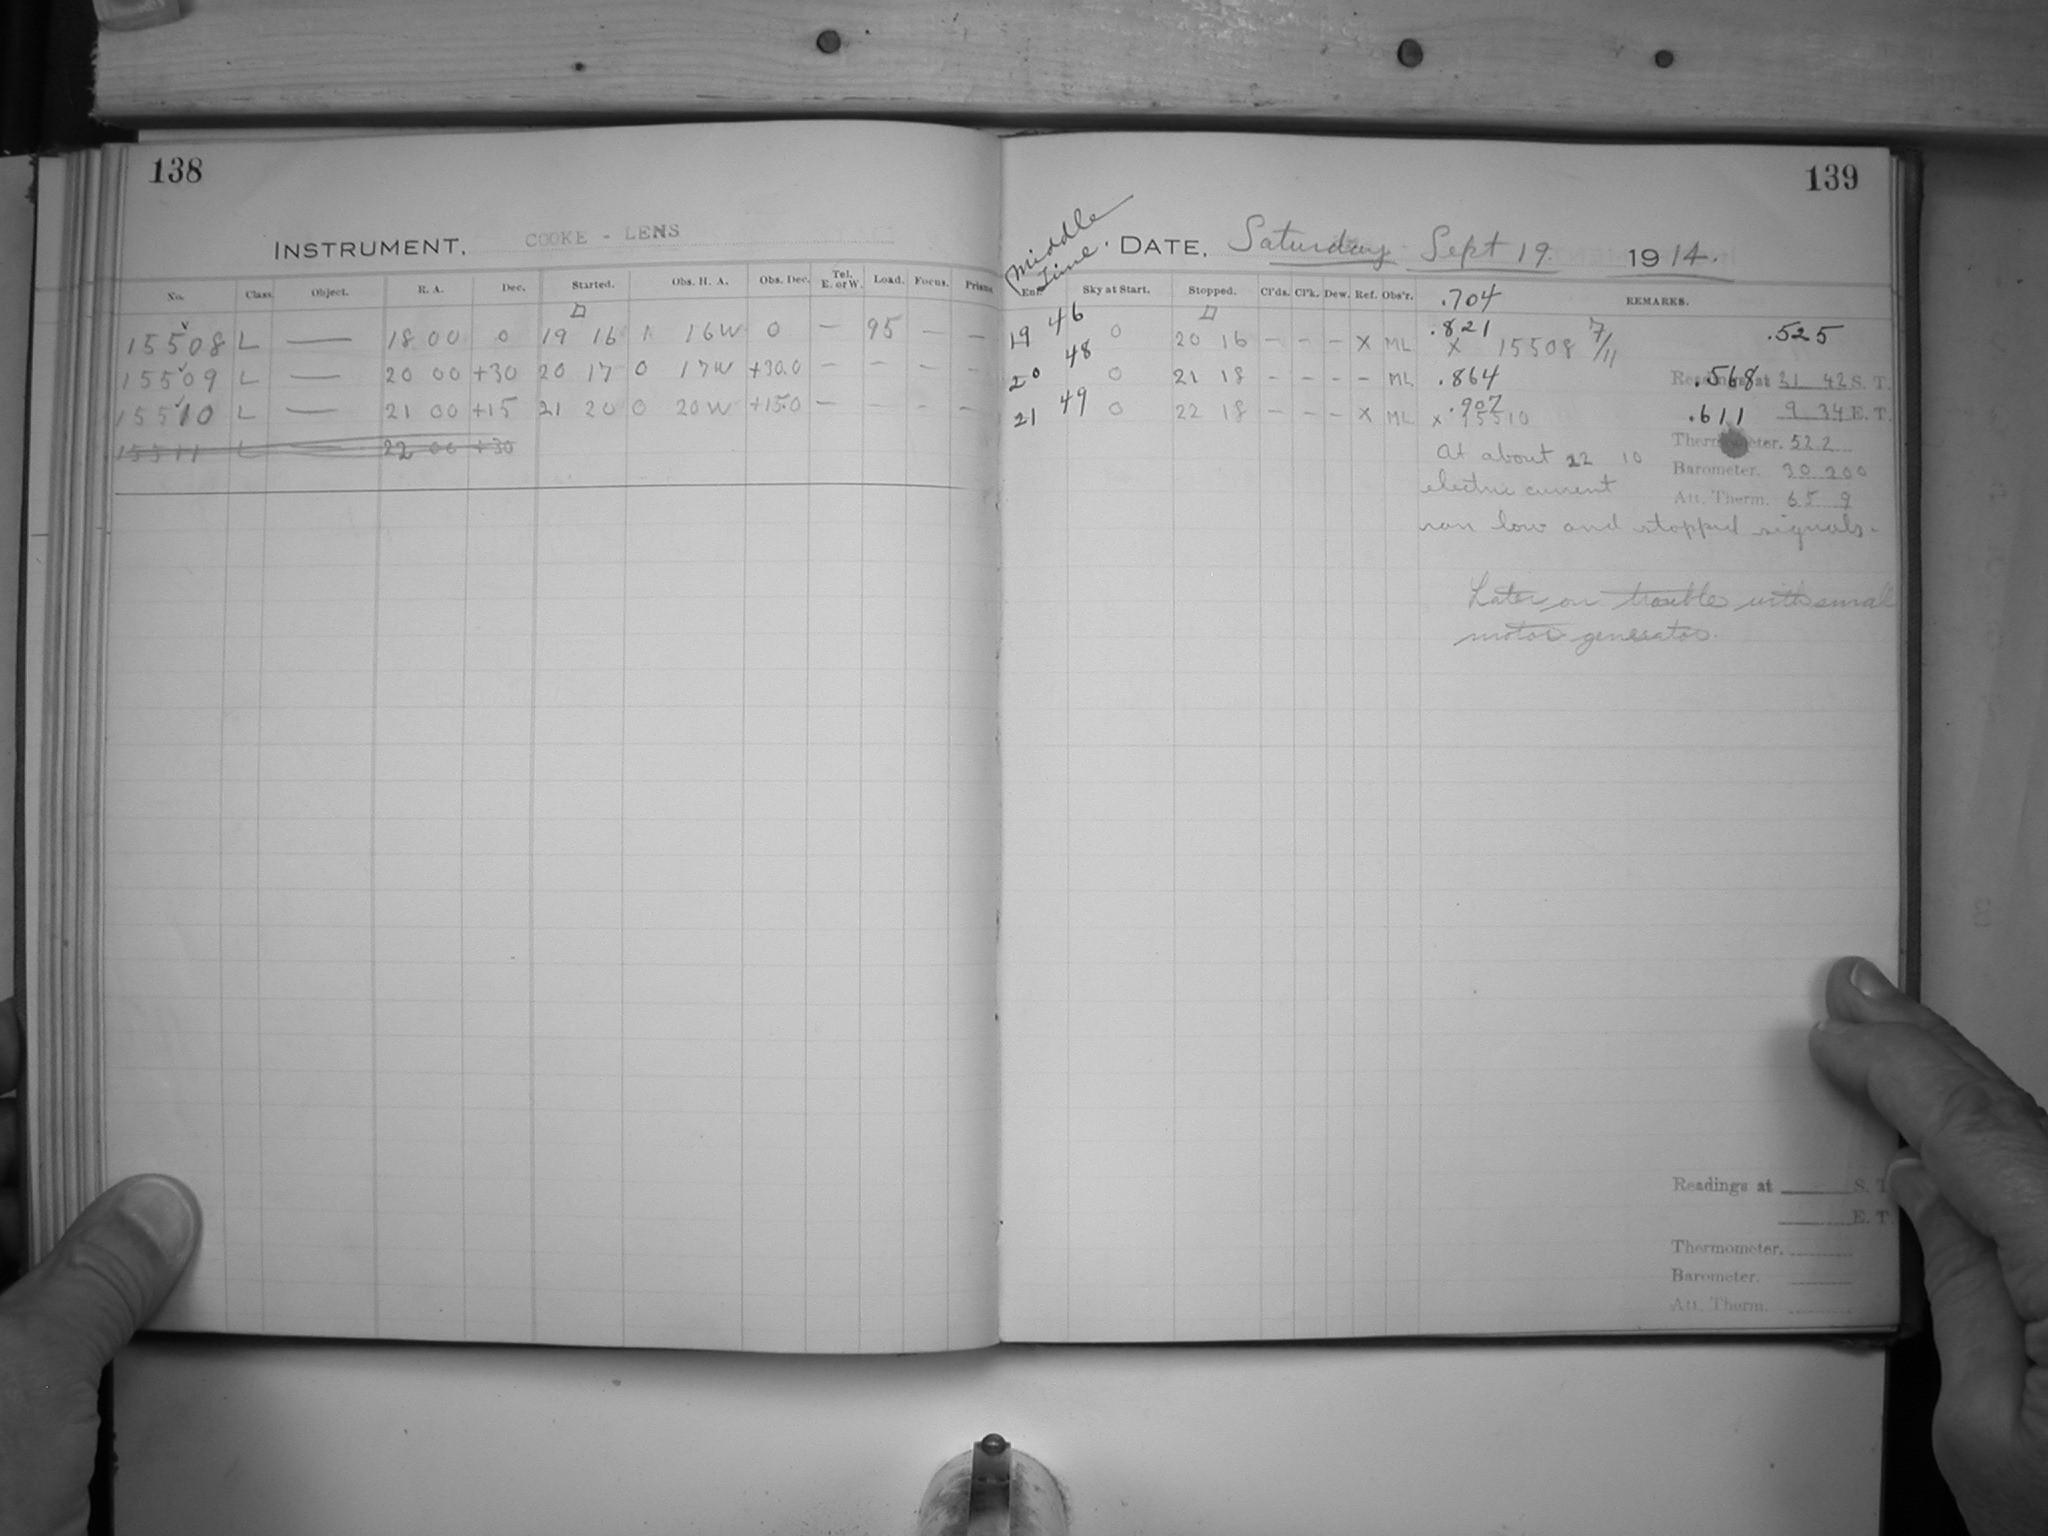 138
INSTRUMENT. COOKE - LENS
No. Class. Object. R. A. Dec. Started. Obs. H. A. Obs. Dec. Tel. E. or W. Load. Focus. Prisms
15508 L — 18 00 0 19 16 1 16W 0 — 95 — —
15509 L — 20 00 +30 20 17 0 17W +30.0 — — — —
15510 L — 21 00 +15 21 20 0 20W +15.0 — — — —
15511 L — 22 00 +30
139
Middle Time. DATE. Saturday Sept 19. 1914.
Sky at Start. Stopped. Cl'ds. Cl'k. Dew. Ref. Obs'r. .704 REMARKS.
19 46 0 20 16 – – – X ML .821 X 15508 7/11 .525
20 48 0 21 18 – – – – ML .864 .568 Readings at 21 42 S. T.
21 49 0 22 18 – – – X ML .907 X 15510 .611 9 34 E. T.
Thermometer. 52.2
At about 22 10 Barometer. 30.200
electric current Att. Therm. 65.9
ran low and stopped signals.
Later on trouble with small
motor generator.
Readings at S. T.
E. T.
Thermometer.
Barometer.
Att. Therm.